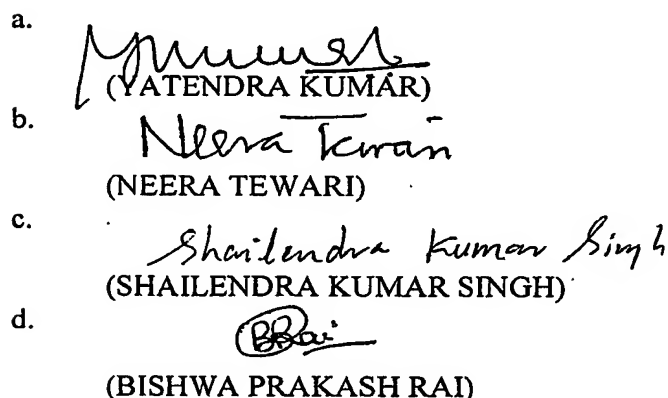 a.
(YATENDRA KUMAR)
b.
Neera Tewari
(NEERA TEWARI)
c.
Shailendra Kumar Singh
(SHAILENDRA KUMAR SINGH)
d.
BRai
(BISHWA PRAKASH RAI)